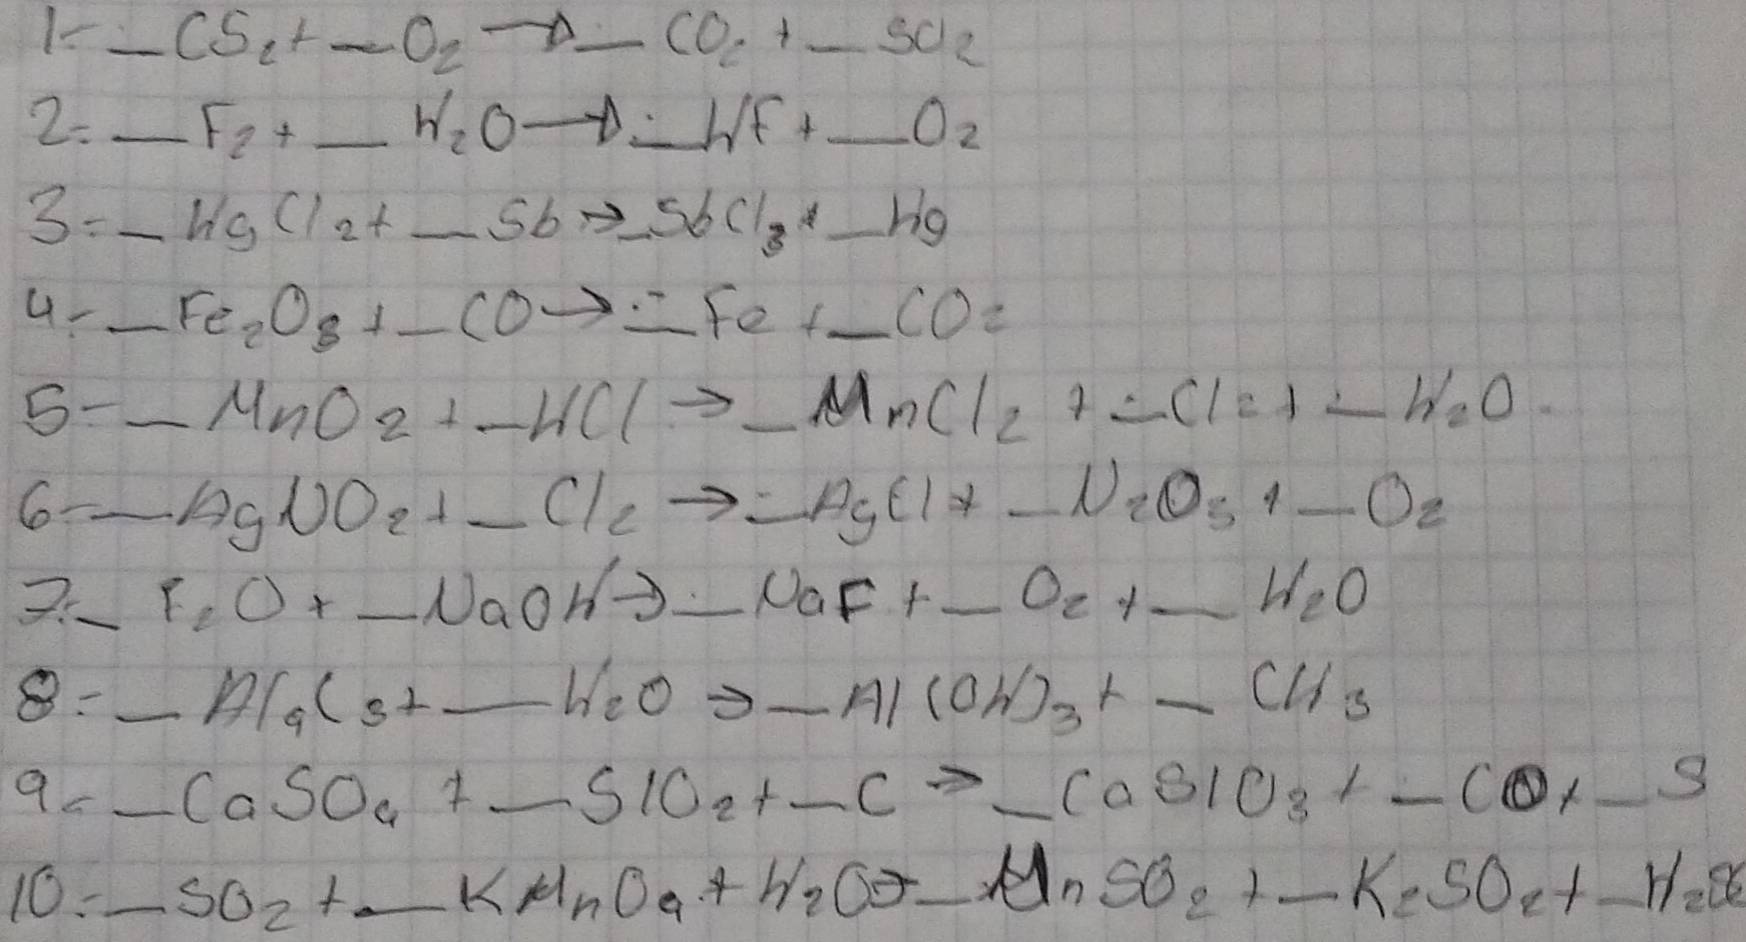 1- _CS₂ + _O₂ → _CO₂ + _SO₂
2- _F₂ + _H₂O → _HF + _O₂
3- _HgCl₂ + _Sb → _SbCl₃ + _Hg
4- _Fe₂O₃ + _CO → _Fe + _CO₂
5- _MnO₂ + _HCl → _MnCl₂ + _Cl₂ + _H₂O
6- _AgNO₂ + _Cl₂ → _AgCl + _N₂O₅ + _O₂
7- _F₂O + _NaOH → _NaF + _O₂ + _H₂O
8- _Al₄C₃ + _H₂O → _Al(OH)₃ + _CH₃
9- _CaSO₄ + _SiO₂ + _C → _CaSiO₃ + _CO + _S
10- _SO₂ + _KMnO₄ + H₂O → _MnSO₂ + _K₂SO₂ + _H₂